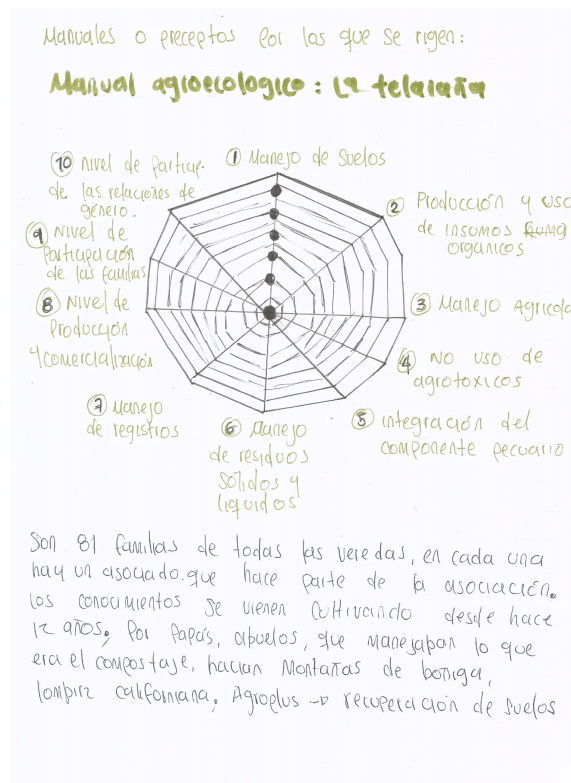 Manuales o preceptos por los que se rigen:
Manual agroecologico: La telaraña
① Manejo de Suelos
② Producción y uso
de insumos
organicos
③ Manejo Agricola
④ No uso de
agrotoxicos
⑤ integración del
componente pecuario
⑥ Manejo
de residuos
sólidos y
liquidos
⑦ Manejo
de registros
⑧ Nivel de
Producción
y comercialización
⑨ Nivel de
Participación
de las familias
⑩ nivel de particip.
de las relaciones de
género.
Son 81 familias de todas las veredas, en cada una
hay un asociado. que hace parte de la asociación.
los conocimientos se vienen cultivando desde hace
12 años. Por Papás, abuelos, que manejaban lo que
era el compostaje, hacian Montañas de boñiga,
lombriz californiana. Agroplus → recuperación de suelos